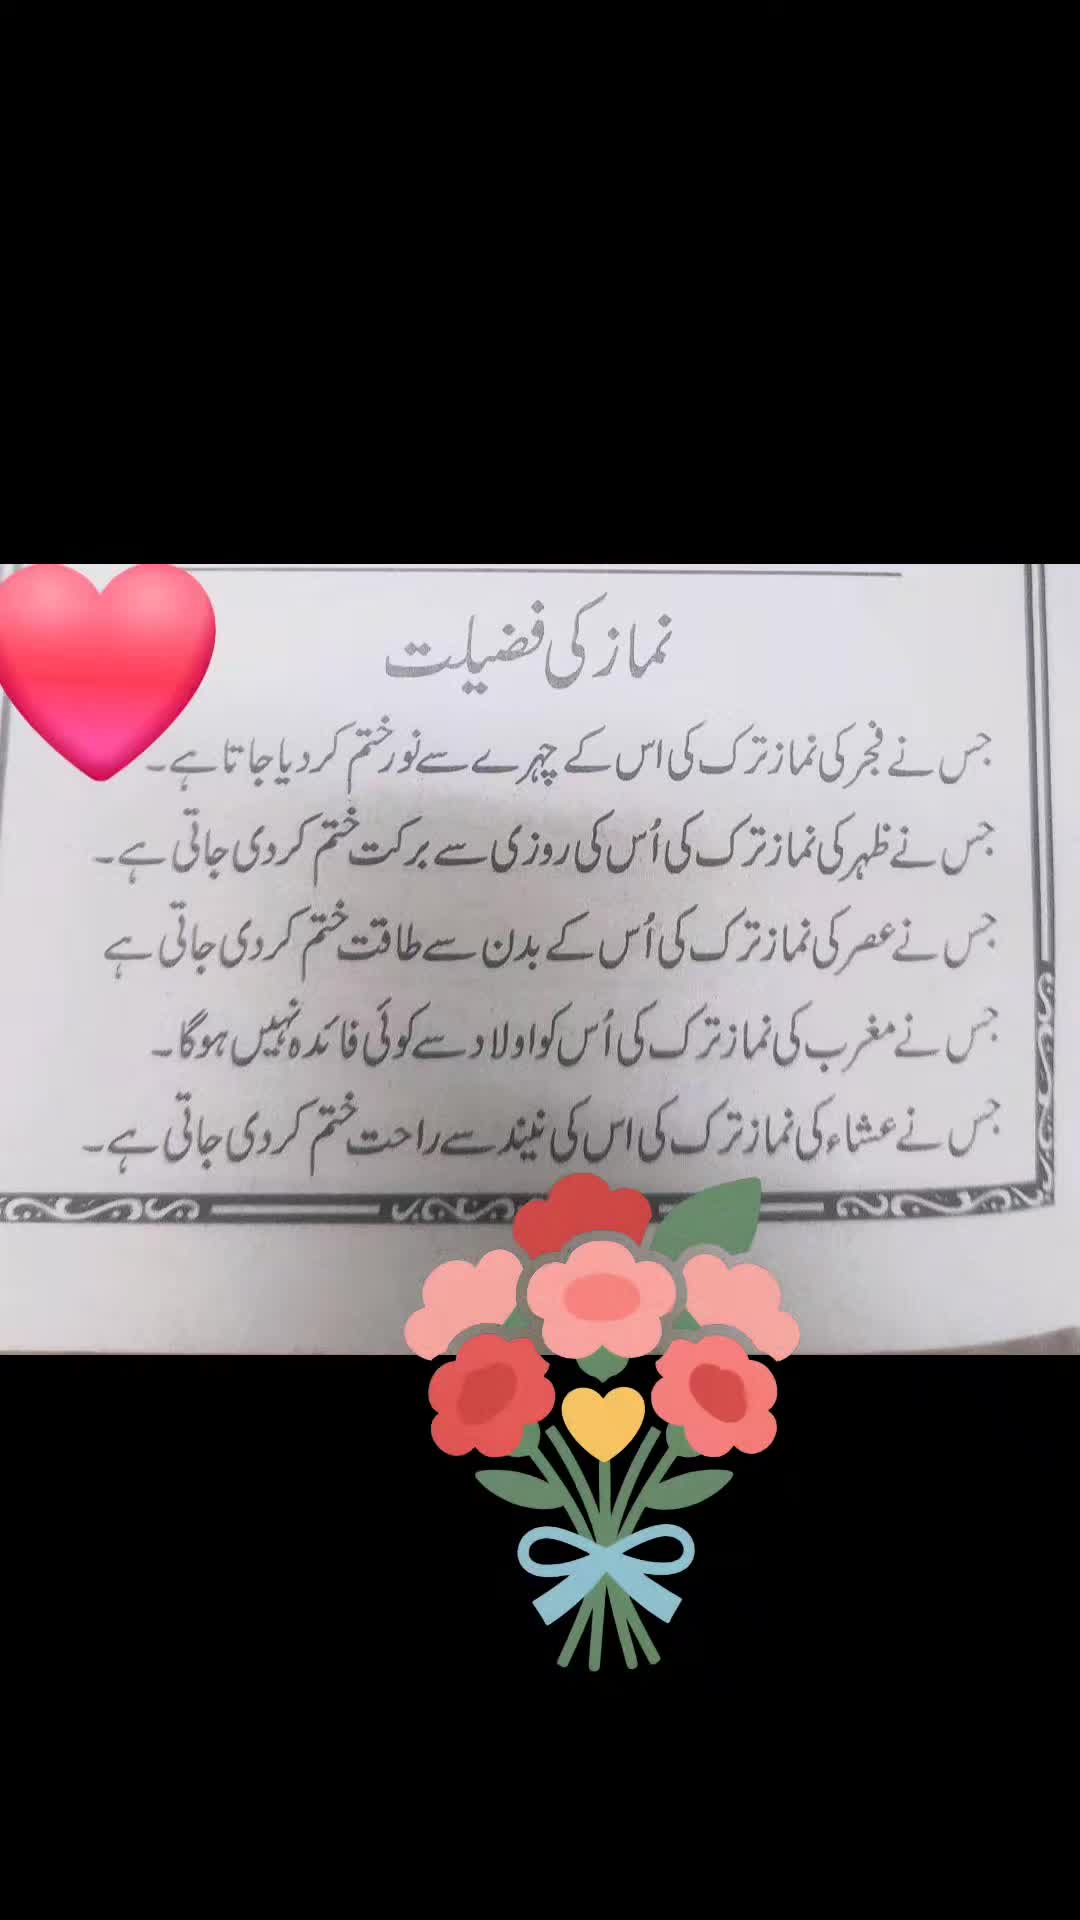 نماز کی فضیلت
جس نے فجر کی نماز ترک کی اس کے چہرے سے نور ختم کر دیا جاتا ہے۔
جس نے ظہر کی نماز ترک کی اُس کی روزی سے برکت ختم کر دی جاتی ہے۔
جس نے عصر کی نماز ترک کی اُس کے بدن سے طاقت ختم کر دی جاتی ہے
جس نے مغرب کی نماز ترک کی اُس کو اولاد سے کوئی فائدہ نہیں ہوگا۔
جس نے عشاء کی نماز ترک کی اس کی نیند سے راحت ختم کر دی جاتی ہے۔